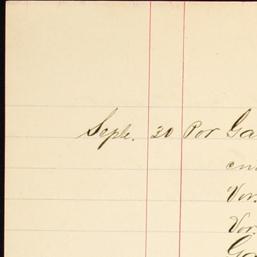 Sept. 20 Por Ga
en
Vor.
Vor.
Go